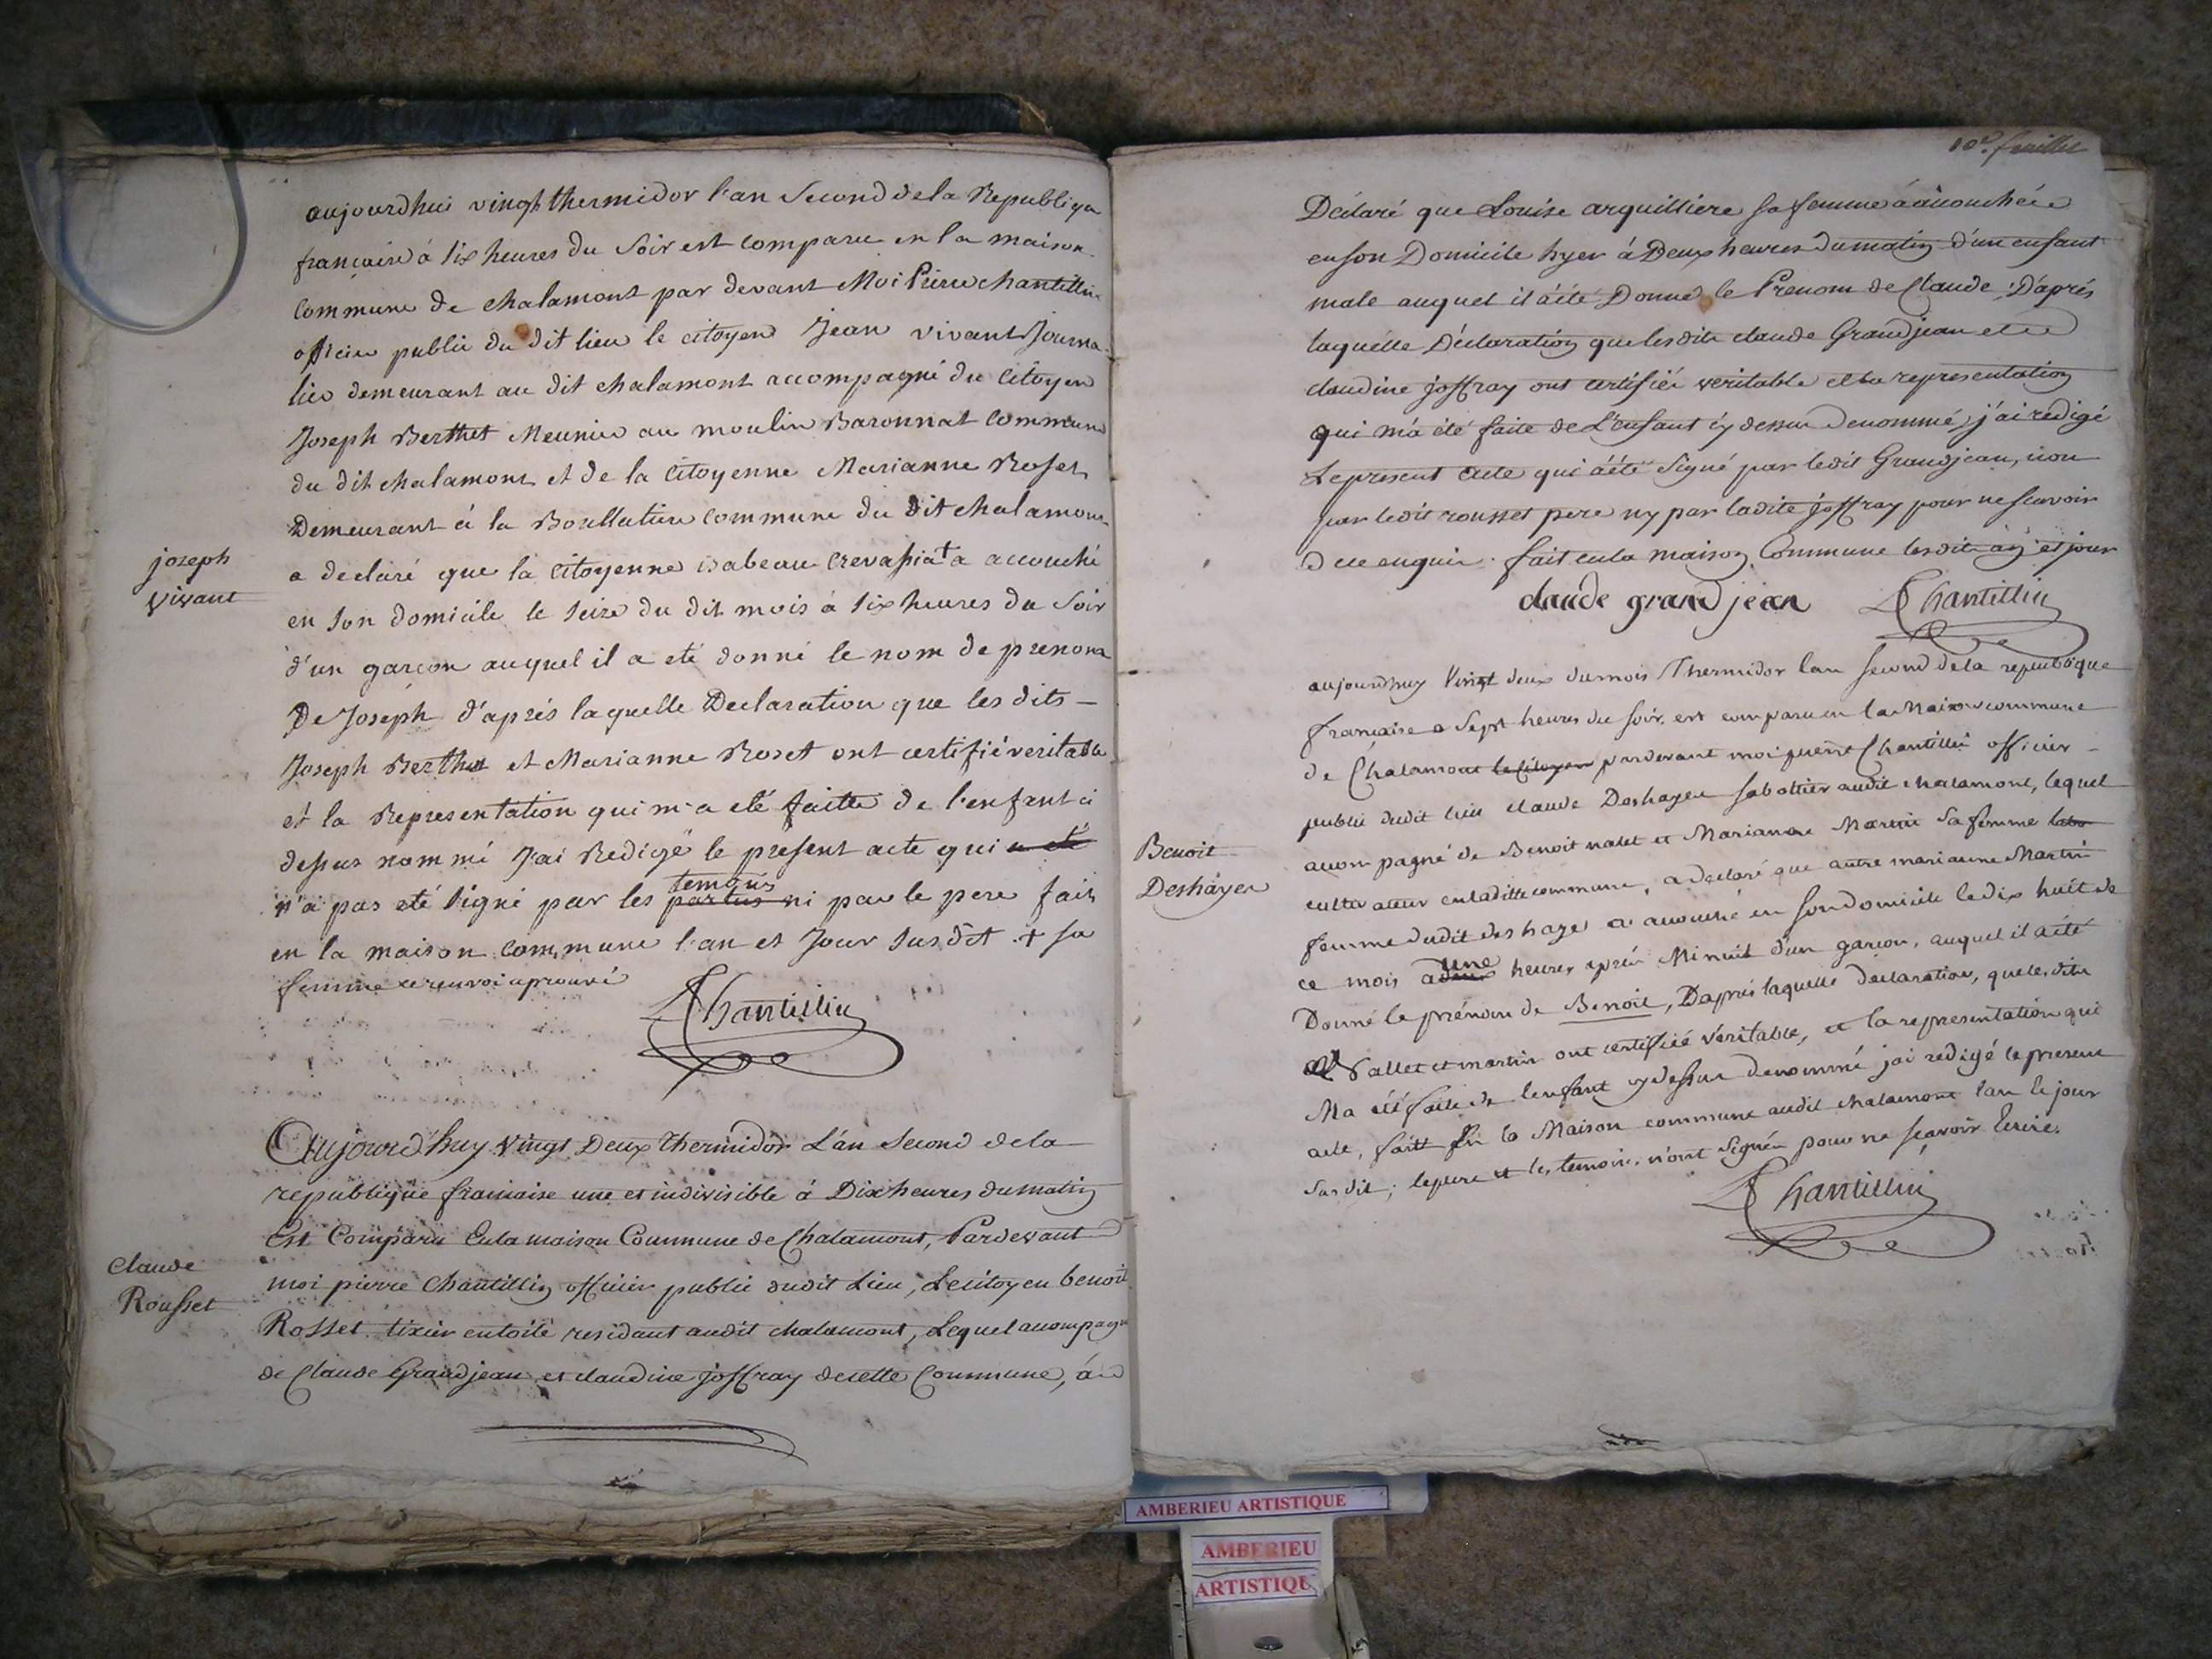 aujourdhui vingt thermidor l'an Second de la Republiqu
francaise à six heures du Soir est comparu en la maison
commune de chalamont par devant Moi Pierre chantillin
officier public du dit lieu le citoyen Jean vivant Journa
lier demeurant au dit chalamont accompagné du Citoyen
Joseph Berthet Meunier au moulin Baronnat commune
du dit chalamont et de la Citoyenne Marianne Roset
Demeurant à la commune du dit chalamont
joseph
vivant
a declaré que la Citoyenne isabeau a accouché
en son domicile le seize du dit mois à six heures du Soir
d'un garcon auquel il a eté donné le nom de prenom
De Joseph d'aprés laquelle Declaration que les dits -
Joseph Berthet et Marianne Roset ont certifié veritable
et la Representation qui m'a eté faitte de l'enfant ci
dessus nommé J'ai Redigé le present acte qui a eté
n'a pas eté signé par les parties temoins ni par le pere fait
en la maison commune l'an et Jour susdit + sa
femme ce renvoi aprouvé
Chantillin
Aujourd'huy Vingt Deux thermidor L'an Second de la
republique francaise une et indivisible à Dix heures du matin
Est Comparu En la maison Commune de Chalamont, Pardevant
claude
Rousset
moi pierre Chantillin officier public dudit Lieu, Le citoyen benoit
Rosset tixier en toile residant audit chalamont, Lequel accompagné
de Claude Grandjean et claudine joffray de cette Commune, a
10e. feuillet
Déclaré que Louise arquilliere sa femme a accouchée
en son Domicile hyer à Deux heures du matin d'un enfant
male auquel il a été Donné le Prenom de Claude, D'aprés
laquelle Déclaration que lesdits claude Grandjean et
claudine joffray ont certifiée veritable et la representation
qui m'a été faite de L'enfant cy dessus Denommé, j'ai redigé
Le present acte qui a été signé par ledit Grandjean, non
par ledit rousset pere ny par ladite joffray pour ne scavoir
de ce enquis. fait en la maison Commune lesdits an et jour
claude grand jean Chantillin
aujourdhuy Vingt deux du mois Thermidor lan second de la republique
francaise a Sept heures du soir, est comparu en la Maison commune
de Chalamont le Citoyen pardevant moi pierre Chantillin officier -
public dudit lieu claude Deshayes sabottier audit chalamont, lequel
Benoit
Deshayes
accompagné de Benoit valet et Marianne Martin Sa femme labo
cultivateur en laditte commune, a declaré que autre marianne Martin
femme dudit deshaye a accouché en son domicile le dix huit de
ce mois a deux une heures après Minuit d'un garcon, auquel il a été
Donné le prénom de Benoit, D'aprés laquelle declaration, que lesdits
Vallet et martin ont certifié Véritable, et la representation qui
Ma été faite de lenfant cy dessus denommé jai redigé le present
acte, fait En la Maison commune audit chalamont lan le jour
Susdit; le pere et les temoins n'ont Signés pour ne sçavoir Ecrire.
Chantillin
AMBERIEU ARTISTIQUE
AMBERIEU
ARTISTIQU